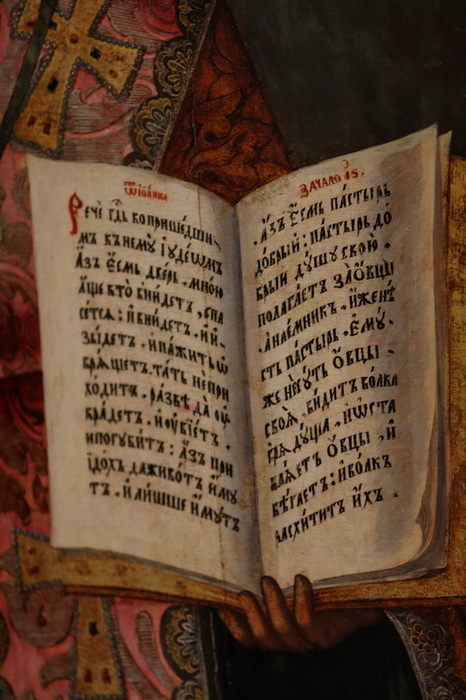 Ѿ Іѡа́нна
Речѐ гд҇ь ко прише́дши
мъ к немꙋ̀ і҆ꙋде́ѡмъ
а҆́зъ є҆́смь две́рь . мно́ю
а҆́ще кто̀ вни́детъ , спа
се́тсѧ : и҆ вни́детъ , и҆ и҆
зы́детъ . и҆ па́жить ѡ
брѧ́щетъ . та́ть не при
хо́дитъ . ра́звѣ да ѹ҆
кра́детъ . и҆ ѹ҆бїе́тъ .
и҆ погꙋби́тъ : а҆́зъ при
і҆до́хъ да живо́тъ и҆́мꙋ
тъ . и҆ ли́шше и҆́мꙋтъ
Зача́ло
. а҆́зъ є҆́смь па́стырь
до́брый : па́стырь до́
брый дꙋ́шꙋ свою̀ .
полага́етъ за ѻ҆́вцы
. а҆ нае́мникъ . и҆́же нѣ̀
сть па́стырь . є҆мꙋ́
же не сꙋ́ть ѻ҆́вцы
своѧ̀ . ви́дитъ во́лка
грѧдꙋ́ща . и҆ ѡ҆ста
влѧ́етъ ѻ҆́вцы . и҆
бѣ́гаетъ : и҆ во́лкъ
расхи́титъ и҆́хъ .